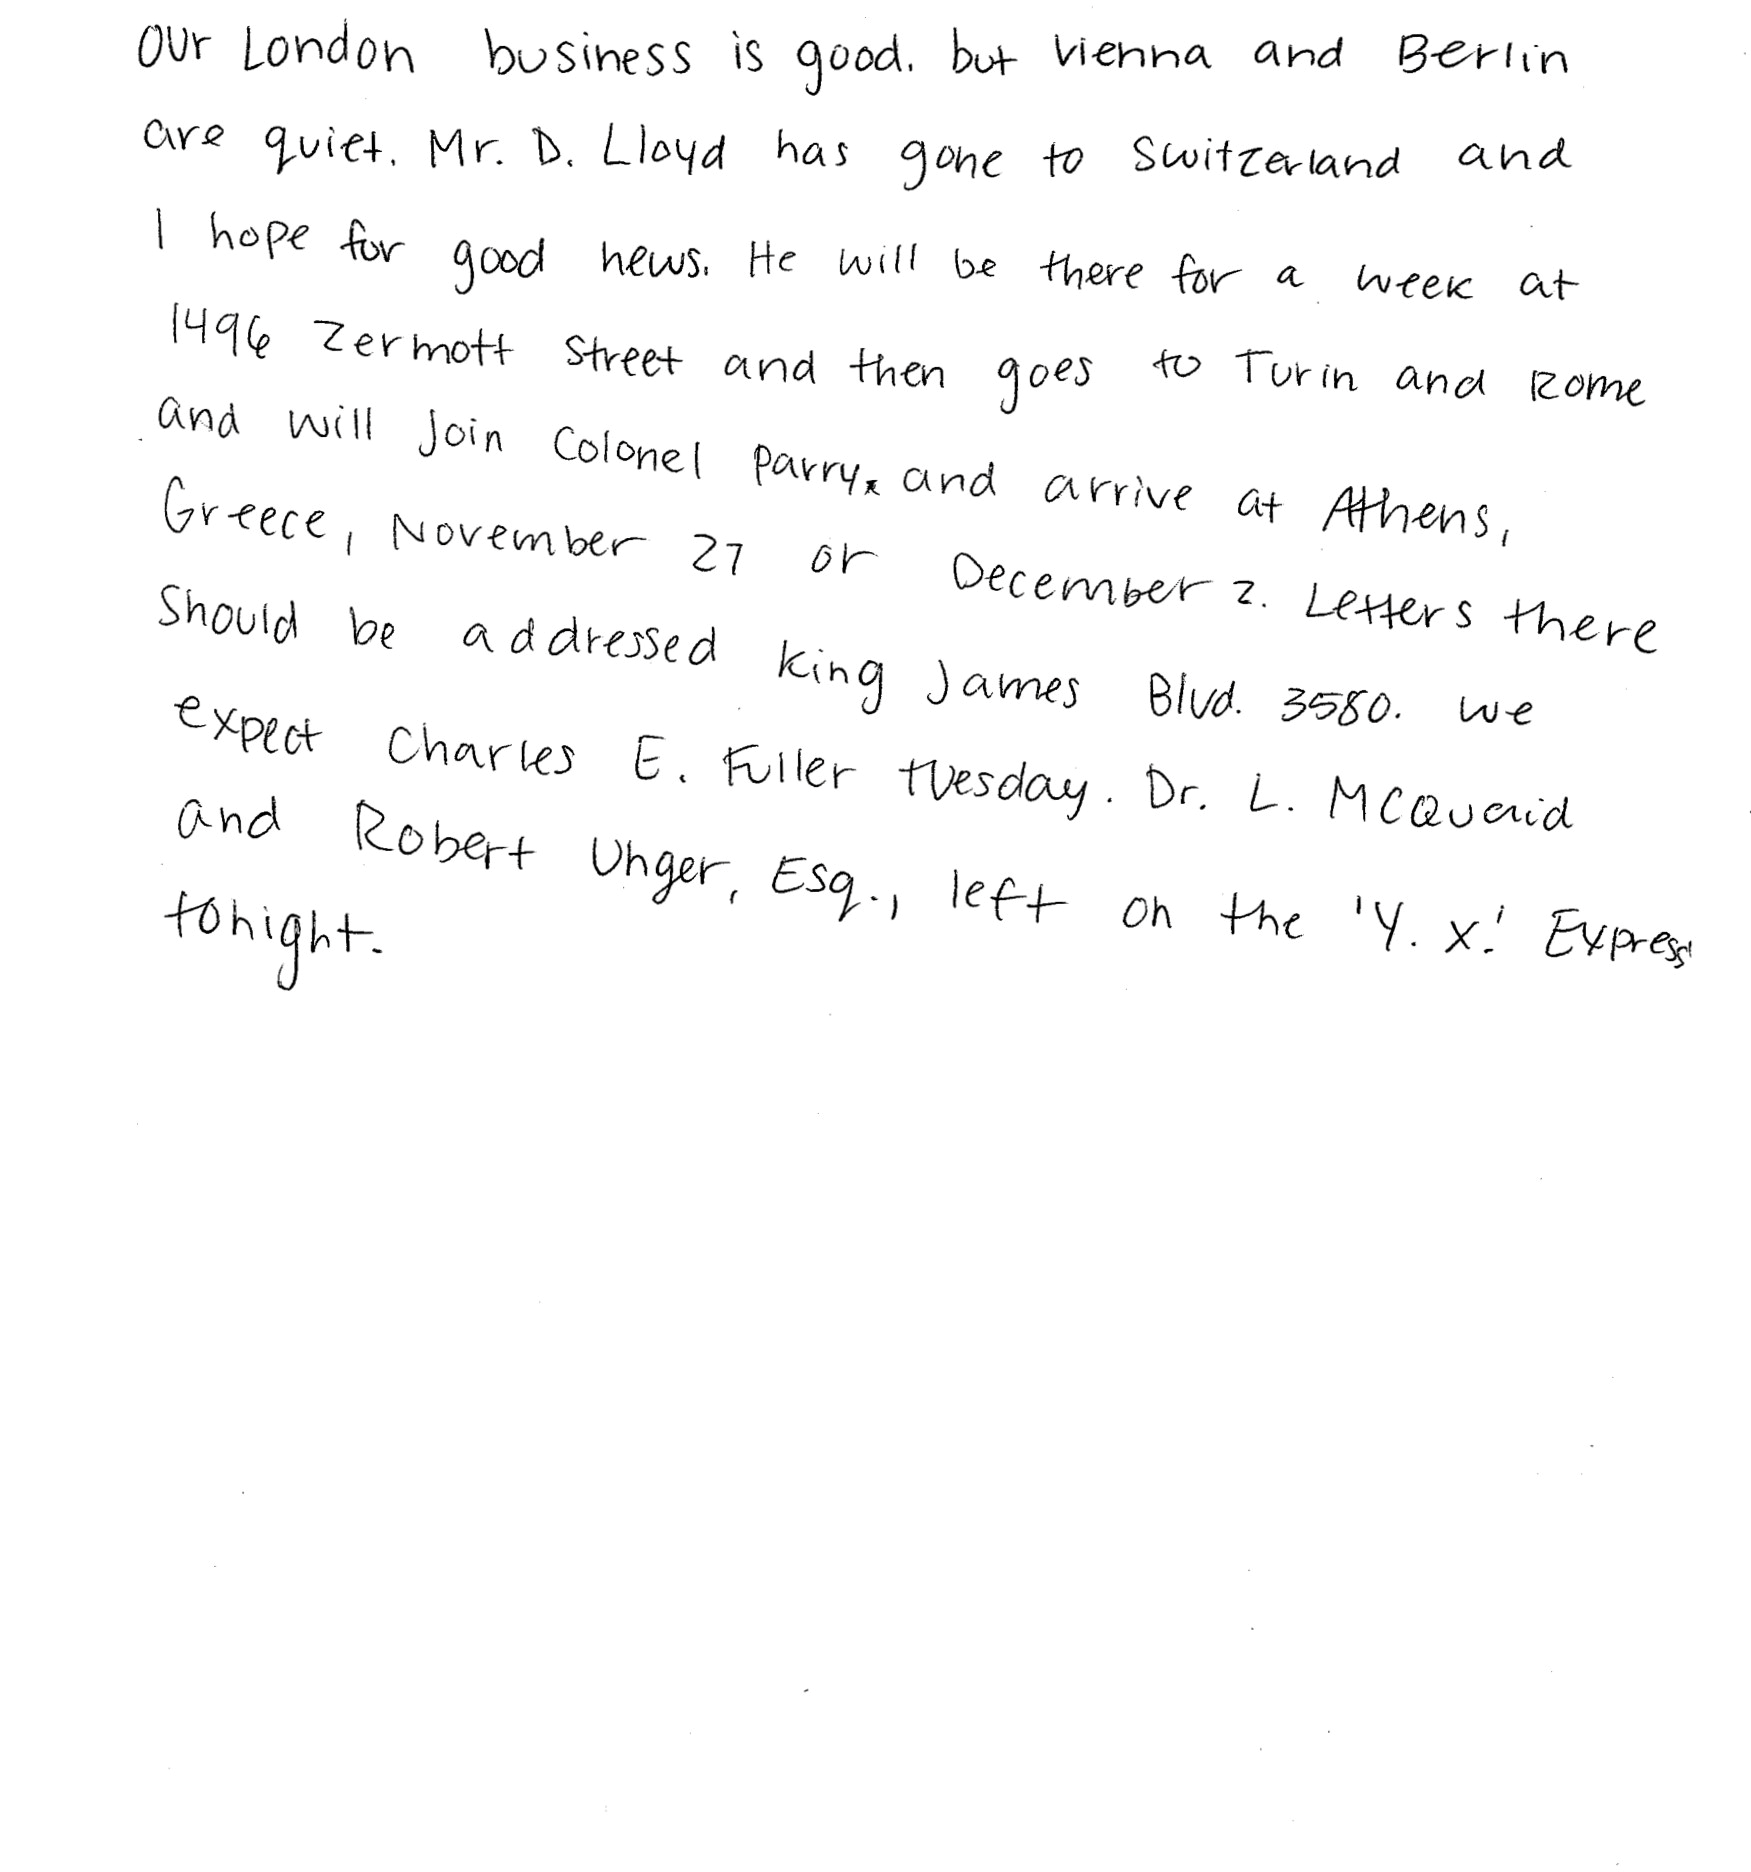 Our London business is good. but Vienna and Berlin
are quiet. Mr. D. Lloyd has gone to Switzerland and
I hope for good news. He will be there for a week at
1496 Zermott Street and then goes to Turin and Rome
and will Join Colonel Parry, and arrive at Athens,
Greece, November 27 or December 2. Letters there
Should be addressed King James Blvd. 3580. We
expect Charles E. Fuller tuesday. Dr. L. McQuaid
and Robert Unger, Esq., left on the 'Y. X.' Express
tonight.